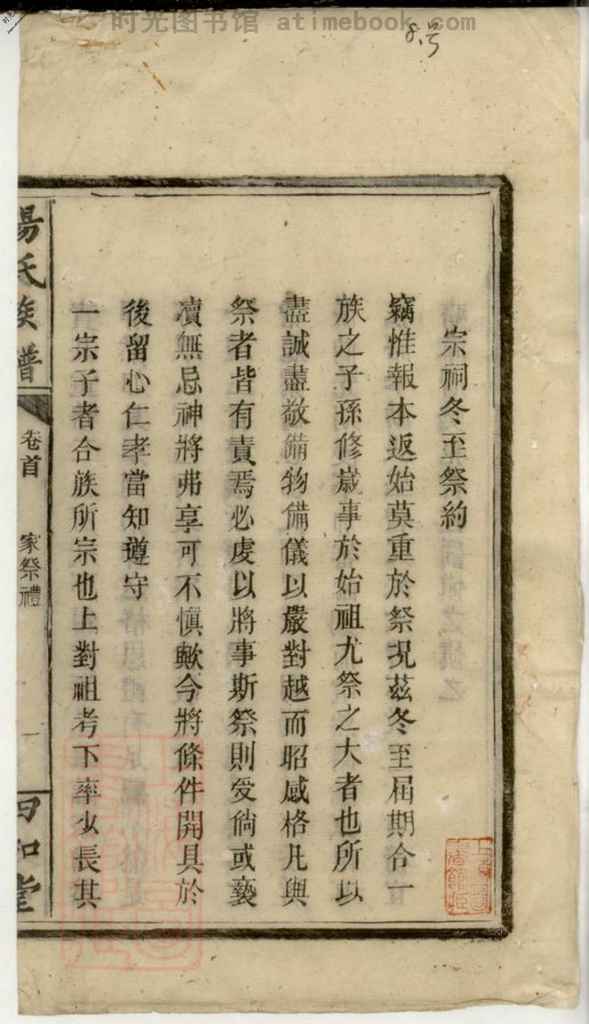 时光图书馆 atimebook.com
8号
宗祠冬至祭約
竊惟報本返始莫重於祭况茲冬至屆期合一
族之子孫修歲事於始祖尤祭之大者也所以
盡誠盡敬備物備儀以嚴對越而昭感格凡與
祭者皆有責焉必虔以將事斯祭則受倘或褻
瀆無忌神將弗享可不慎歟今將條件開具於
後留心仁孝當知遵守
一宗子者合族所宗也上對祖考下率少長其
楊氏族譜
卷首
家祭禮
一
四知堂